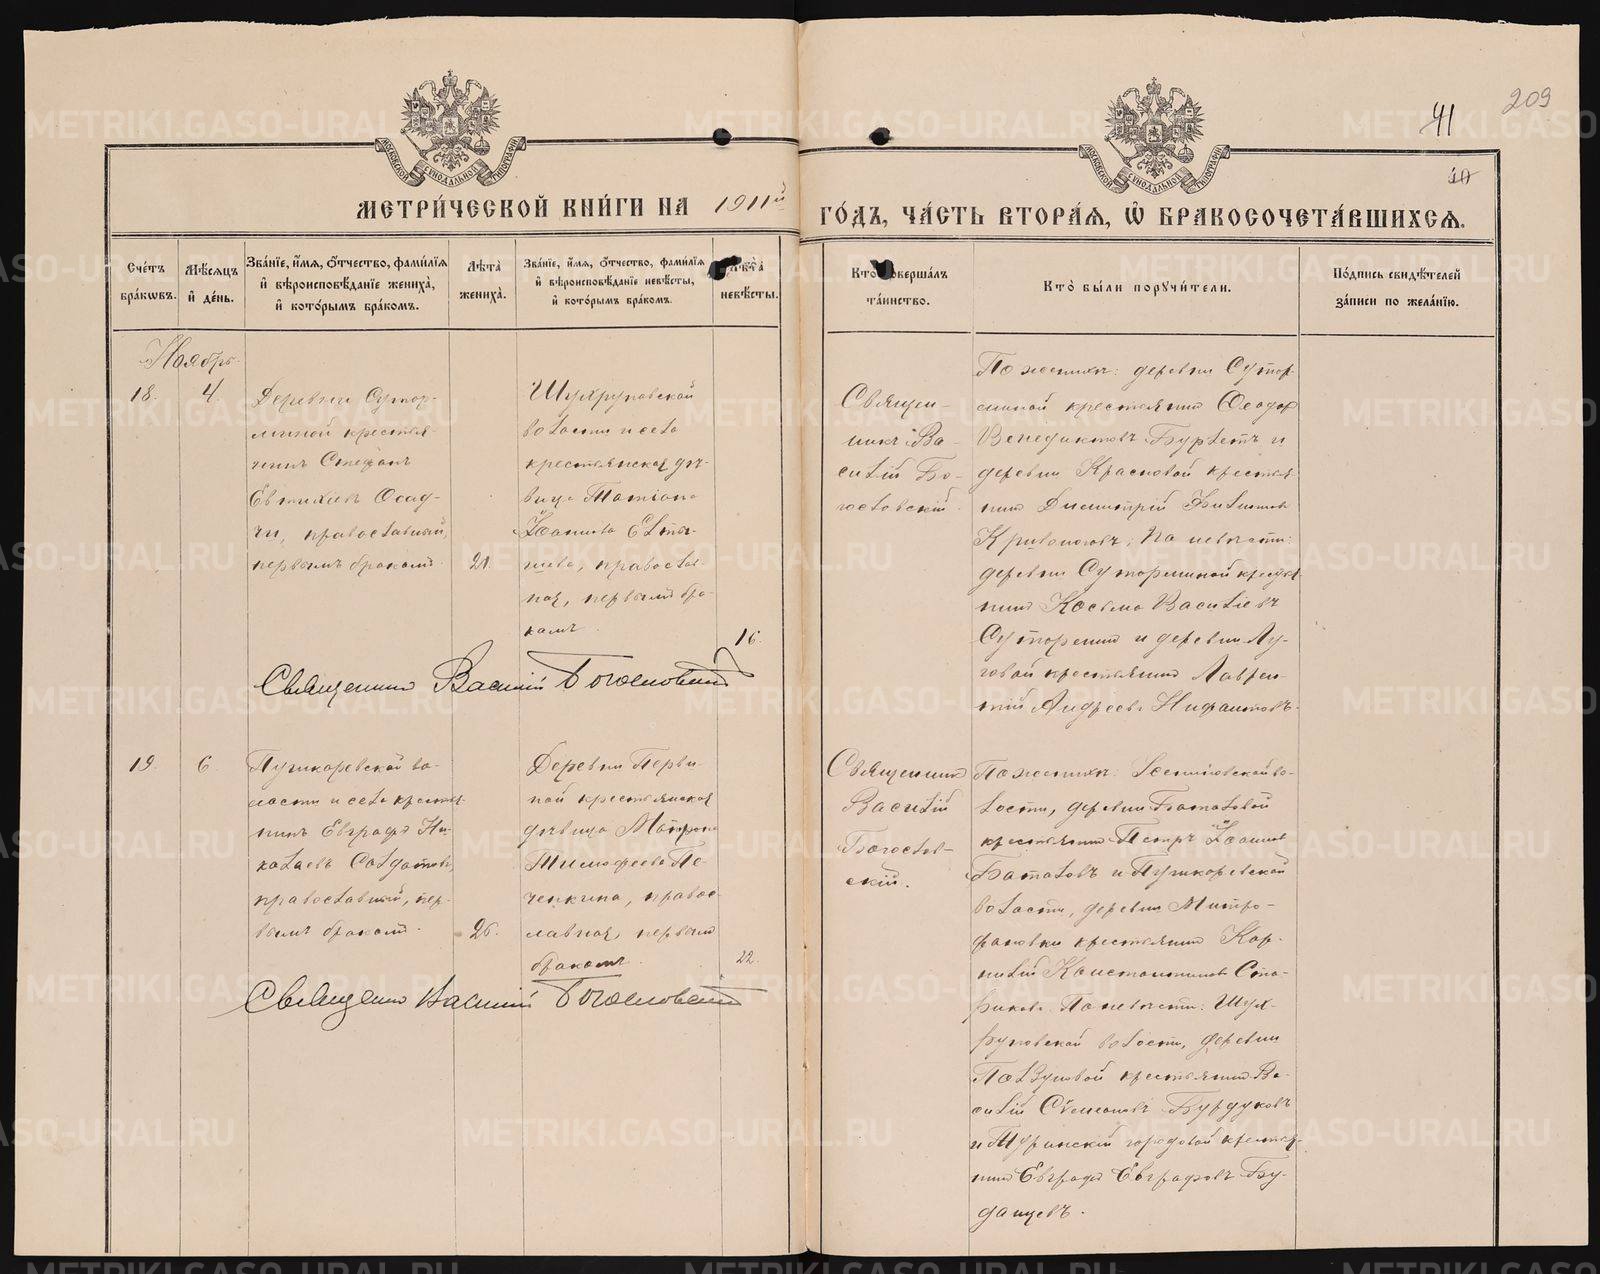 41
209
10
МОСКОВСКОЙ СѴНОДАЛЬНОЙ ТИПОГРАФІИ
МОСКОВСКОЙ СѴНОДАЛЬНОЙ ТИПОГРАФІИ
МЕТРИ́ЧЕСКОЙ КНИ́ГИ НА 1911й ГО́ДЪ, ЧА́СТЬ ВТОРА́Я, Ѽ БРАКОСОЧЕТА́ВШИХСЯ.
Сче́тъ бра́кѡвъ.
Мѣ́сяцъ и҆ де́нь.
Зва́нїе, и҆́мя, ѻ҆́тчество, фами́лїя и҆ вѣроисповѣ́данїе жениха̀, и҆ кото́рымъ бра́комъ.
Лѣ́та жениха̀.
Зва́нїе, и҆́мя, ѻ҆́тчество, фами́лїя и҆ вѣроисповѣ́данїе невѣ́сты, и҆ кото́рымъ бра́комъ.
Лѣ́та невѣ́сты.
Кто̀ соверша́лъ та́инство.
Кто̀ бы́ли порꙋчи́тели.
По́дпись свидѣ́телей за́писи по жела́нїю.
Ноябрь
18.
4.
Деревни Сутор-
миной крестья-
нинъ Стефанъ
Евтихіевъ Осад-
чи, православный,
первымъ бракомъ.
21.
Шухруповской
волости и села
крестьянская дѣ-
вица Татіана
Іоаннова
православ-
ная, первымъ бра-
комъ.
16.
Священ-
никъ Ва-
силій Бо-
гословскій.
По женихѣ: деревни Сутор-
миной крестьянинъ Ѳеодоръ
Венедиктовъ и
деревни Красновой крестья-
нинъ Димитрій Филиповъ
Кривоноговъ; По невѣстѣ:
деревни Суторминой крестья-
нинъ Косьма Васильевъ
Сутормин и деревни Лу-
говой крестьянинъ Лаврен-
тій Андреевъ Нифантовъ.
Священникъ Василій Богословский
19.
6.
Пушкаревской во-
лости и села крестья-
нинъ Евграфъ Ни-
колаевъ Солдатовъ,
православный, пер-
вымъ бракомъ.
26.
Деревни Перви-
ной крестьянская
дѣвица Матрона
Тимофеева Пе-
ченкина, правос-
лавная, первымъ
бракомъ.
22.
Священникъ
Василій
Богослов-
скій.
По женихѣ: во-
лости, деревни Баталовой
крестьянинъ Петръ Іоанновъ
Баталовъ и Пушкаревской
волости, деревни Митро-
фановки крестьянинъ Кор-
нилій Константиновъ Ста-
риковъ. По невѣстѣ: Шух-
руповской волости, деревни
Ползуновой крестьянинъ Ва-
силій Симеоновъ Бурдуковъ
и Туринскій городовой крестья-
нинъ Евграфъ Евграфовъ Бу-
данцевъ.
Священникъ Василій Богословский
METRIKI.GASO-URAL.RU